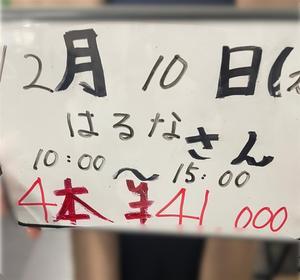 12月10日(
はるなさん
10:00～15:00
4本 ¥41,000